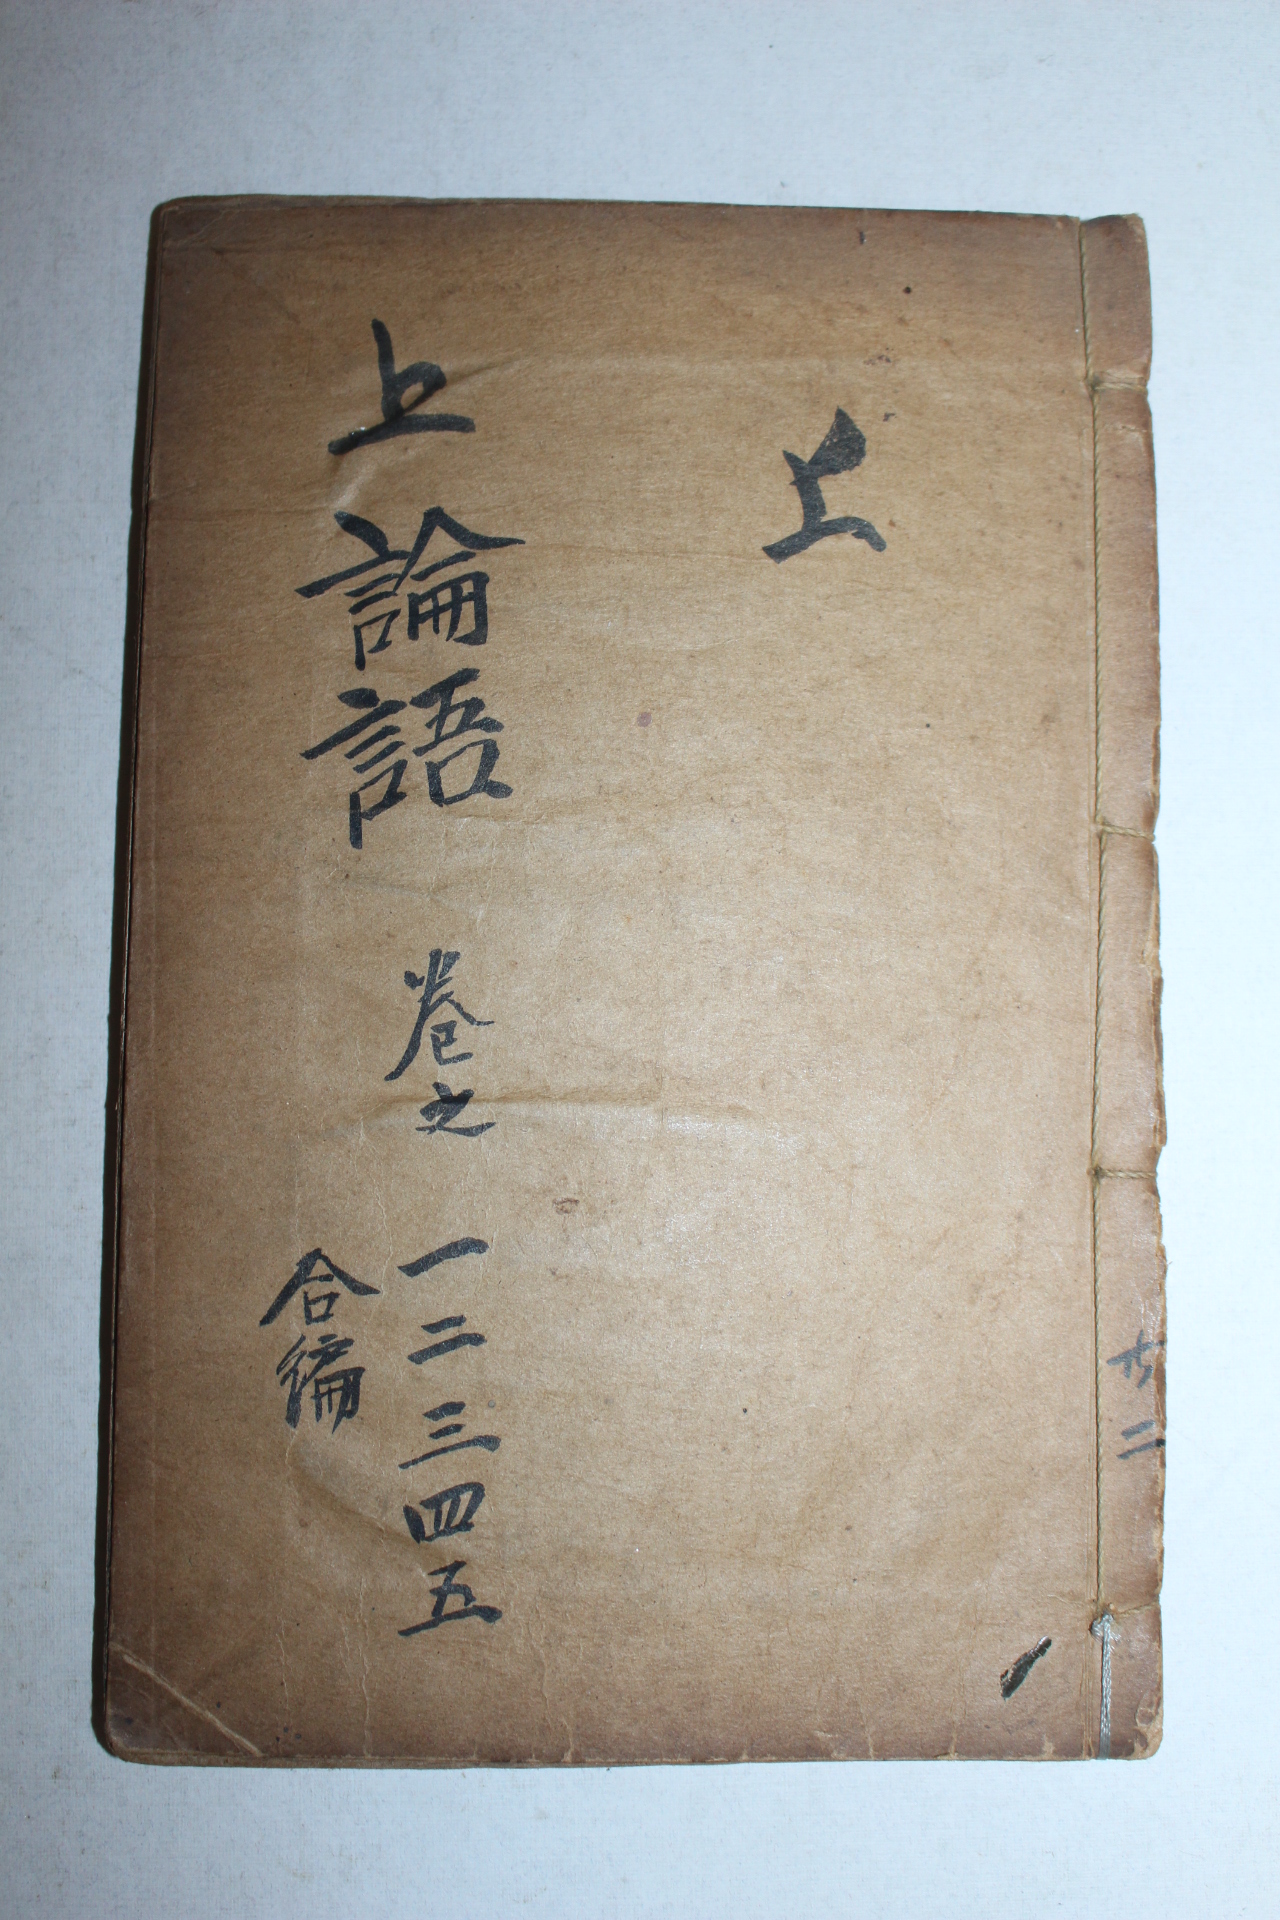 上
上論語 卷之 一二三四五
合編